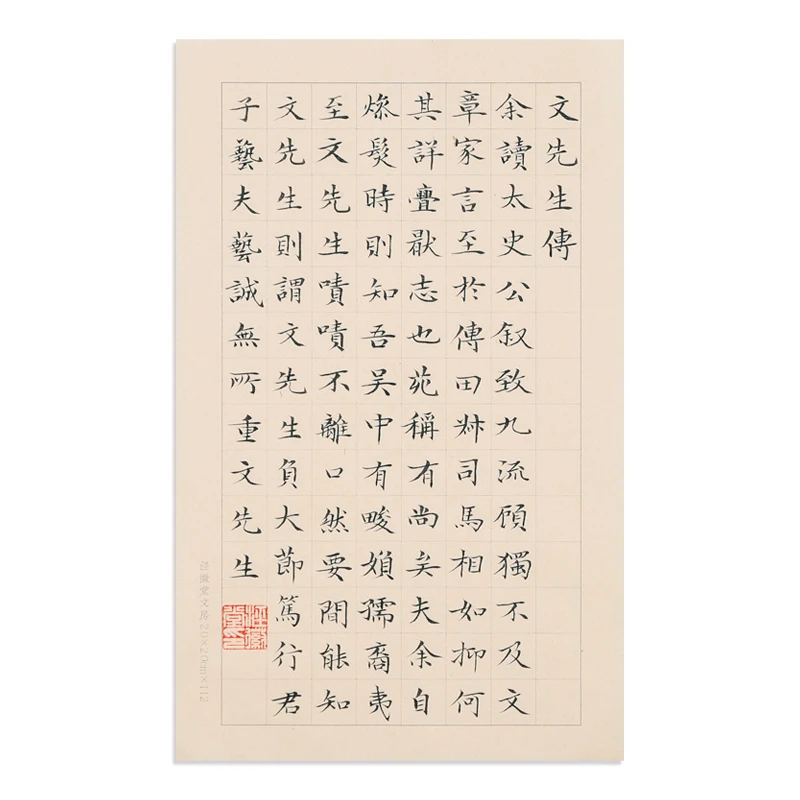 文先生傳
余讀太史公叙致九流頋獨不及文
章家言至於傳田叔司馬相如抑何
其詳疊猒志也苑稱有尚矣夫余自
燥髮時則知吾吴中有畯孺裔夷
至文先生嘖嘖不離口然要間能知
文先生則謂文先生負大節篤行君
子藝夫藝誠無所重文先生